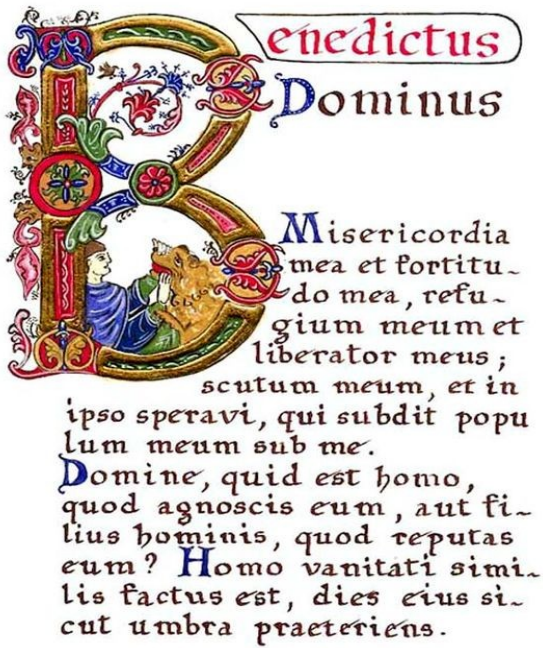 Benedictus
Dominus
Misericordia
mea et fortitu~
do mea, refu~
gium meum et
liberator meus;
scutum meum, et in
ipso speravi, qui subdit popu
lum meum sub me.
Domine, quid est homo,
quod agnoscis eum, aut fi~
lius hominis, quod reputas
eum? Homo vanitati simi~
lis factus est, dies eius si~
cut umbra praeteriens.